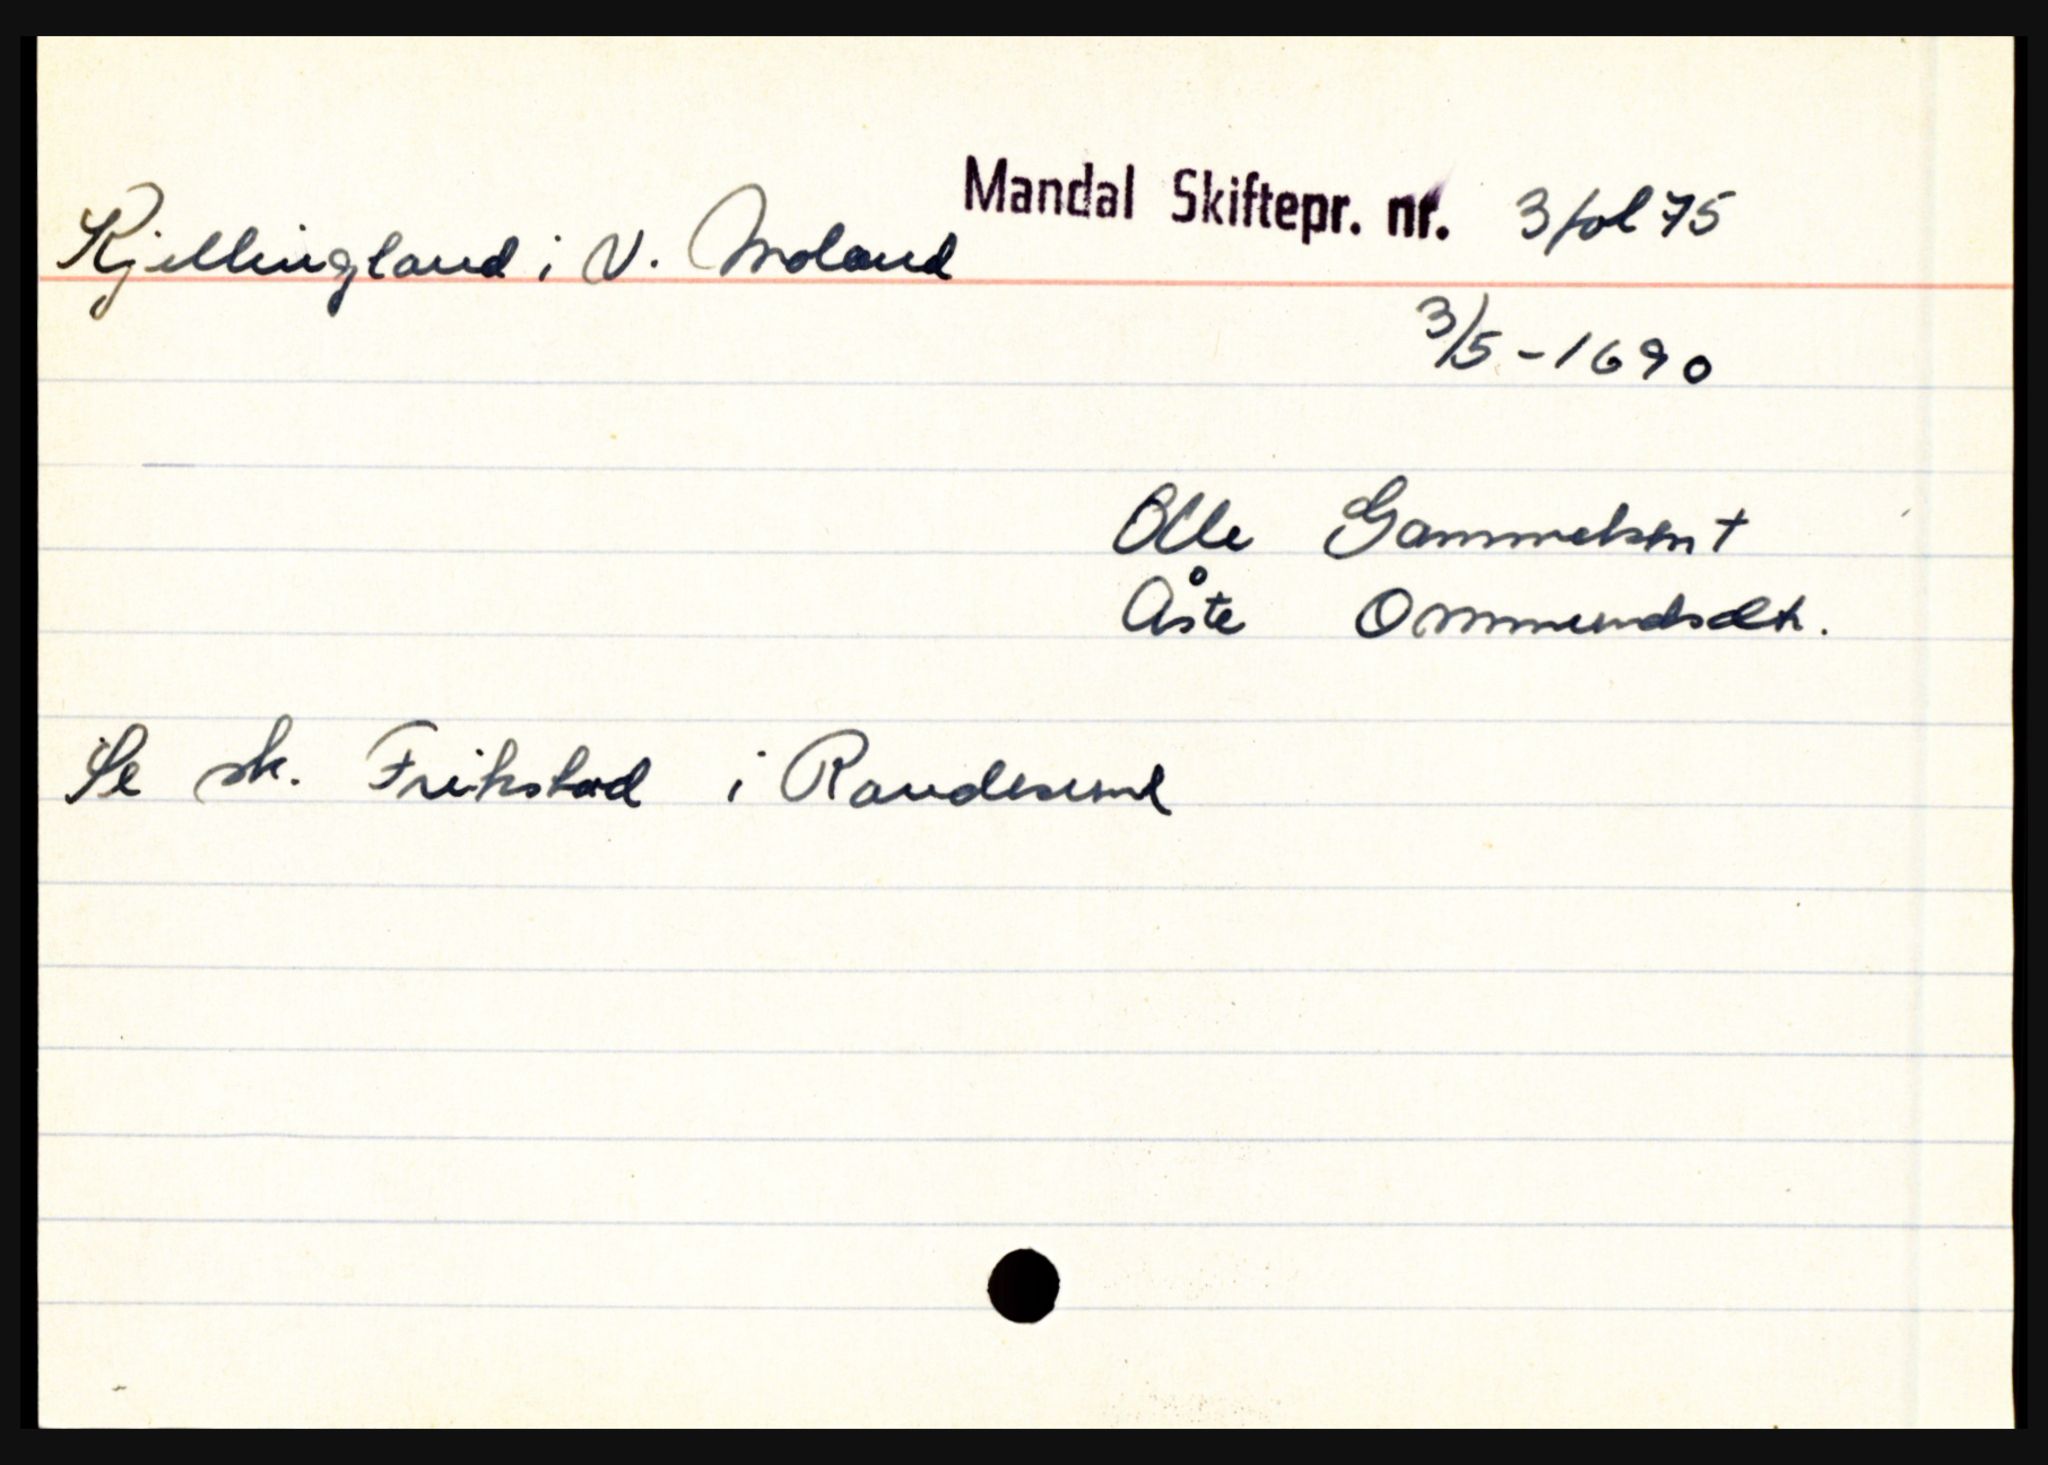 Mandal Skiftepr. nr. 3 fol 75
Kjellingland i V. Moland
3/5 - 1690
Olle Gammelsen †
Åste Ommundsdtr.
Se sk. Frikstad i Randesund